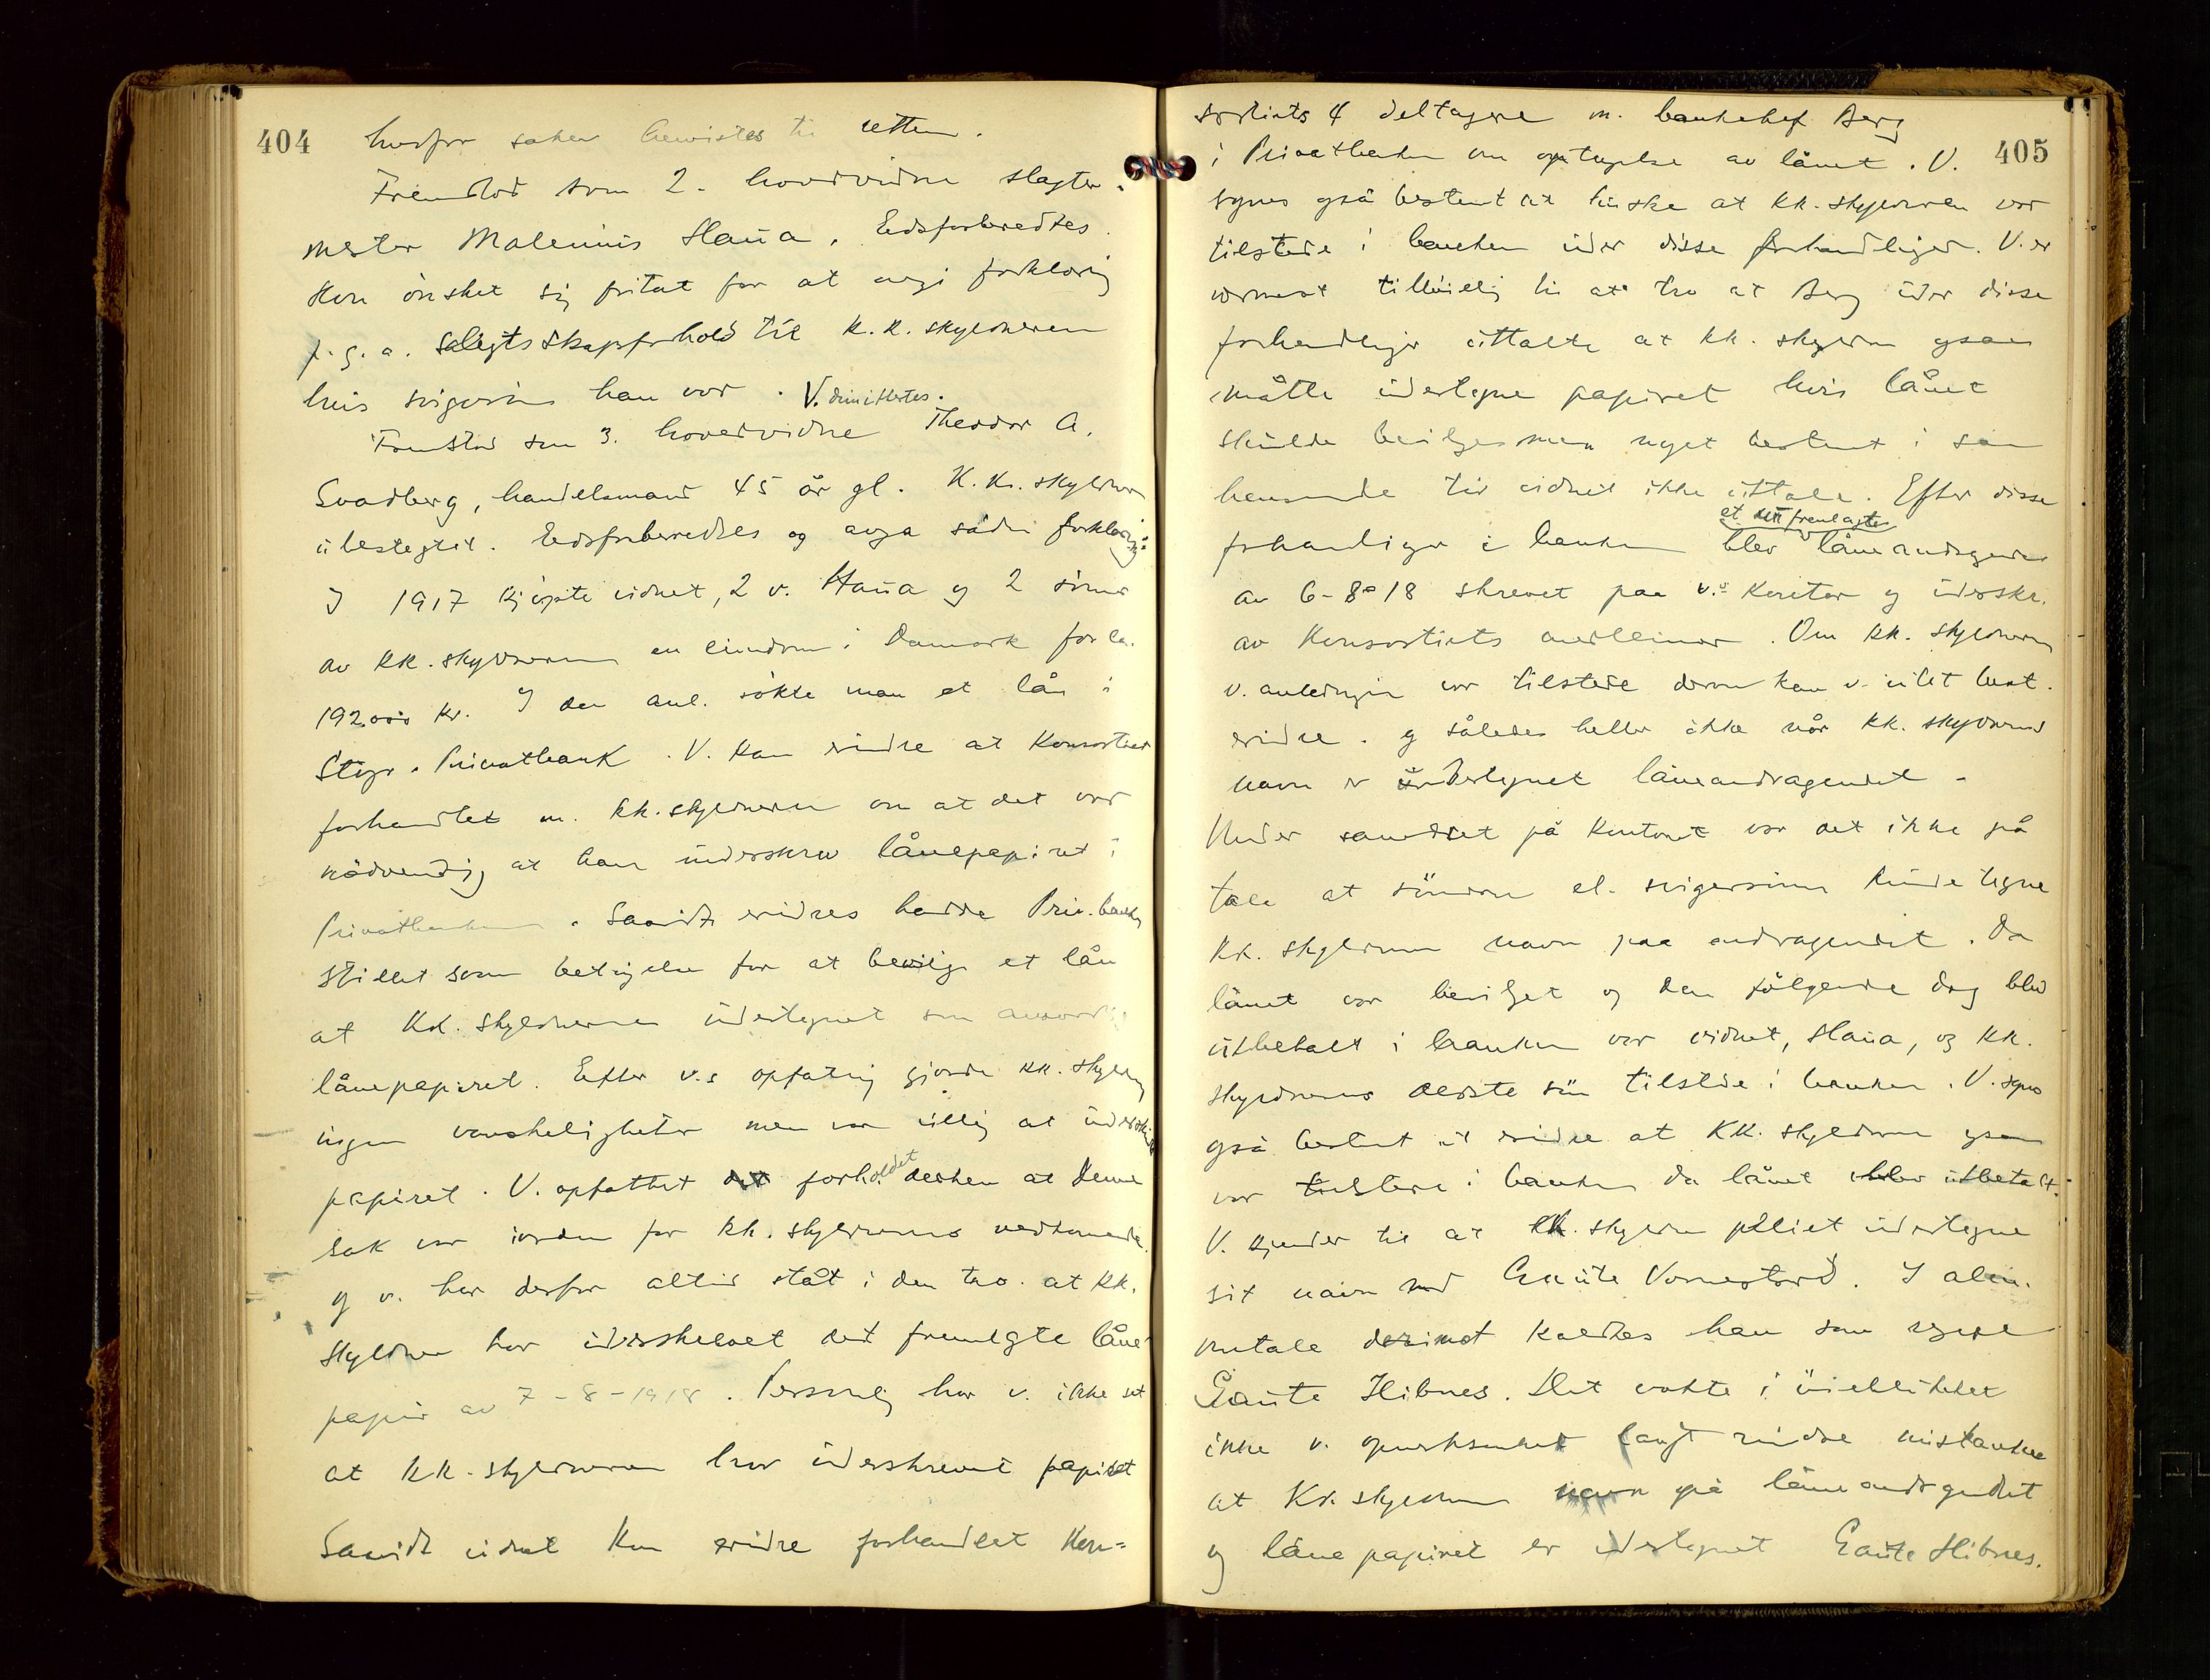 404
hvorfor saken henvistes til retten.
Fremstod som 2. hovedvidne slagter-
mester Malenius Haua. Edsforberedtes.
Han ønsket sig fritat for at avgi forklaring
p.g.a. slegtskapsforhold til k.k. skyldneren
hvis svigersøn han var. V. dimittertes.
Fremstod som 3. hovedvidne Theodor A.
Svadberg, handelsmand 45 år gl. K.k. skyldner
ubeslegtet. Edsforberedtes og avga sådan forklaring:
I 1917 kjøpte vidnet, 2 v. Haua og 2 sønner
av kk. skyldneren en eiendom i Danmark for ca.
192.000 kr. I den anl. søkte man et lån i
Stvgr. Privatbank. V. kan erindre at konsortiet
forhandlet m. kk. skyldneren om at det var
nødvendig at han underskrev lånepapiret i
Privatbanken. Savidt erindres hadde Priv. banken
stillet som betingelse for at bevilge et lån
at kk. skyldneren undertegnet som
lånepapiret. Efter v.s opfatning gjorde kk. skyldner
ingen vanskeligheter men var villig at underskrive
papiret. V. opfattet forholdet derhen at denne
sak var iorden for kk. skyldnerens vedkommende
og v. har derfor altid ståt i den tro at kk.
skyldner har underskrevet det fremlagte låne-
papir av 7-8-1918. Personlig har v. ikke set
at kk. skyldneren har underskrevet papiret
Savidt vidnet kan erindre forhandlet kon-
405
sortiets 4 deltagere m. bankchef Berg
i Privatbanken om optagelse av lånet. V.
synes også bestemt at huske at kk. skyldneren var
tilstede i banken under disse forhandlinger. V. er
nærmest tilbøielig til at tro at Berg under disse
forhandlinger uttalte at kk. skyldner ogsaa
måtte undertegne papiret hvis lånet
skulde bevilges men noget bestemt i saa
henseende tør vidnet ikke uttale. Efter disse
et fremlagte
forhandlinger i banken blev låneandragende
av 6-8-18 skrevet paa v.s kontor og underskr.
av konsortiets medlemmer. Om kk. skyldneren
v. anledningen var tilstede derom kan v. intet best.
erindre og således heller ikke når kk. skyldnerens
navn er undertegnet låneandragendet.
Under samværet på kontoret var det ikke på
tale at sønnen el. svigersønnen kunde tegne
kk. skyldneren navn paa andragendet. Da
lånet var bevilget og den følgende dag blev
utbetalt i banken var vidnet, Haua, og kk.
skyldnerens ældste søn tilstede i banken. V. synes
også bestemt at erindre at kk. skyldneren ogsaa
var tilstede i banken da lånet blev utbetalt.
V. kjender til at kk. skyldner pleiet undertegne
sit navn med Gaute Vormestrand. I alm.
omtale derimot kaldtes han som regel
Gaute Hibnes. Det vakte i øieblikket
ikke v. opmerksomhet langt mindre mistanke
at kk. skyldneren navn på låneandragendet
og lånepapiret er undertegnet Gaute Hibnes.